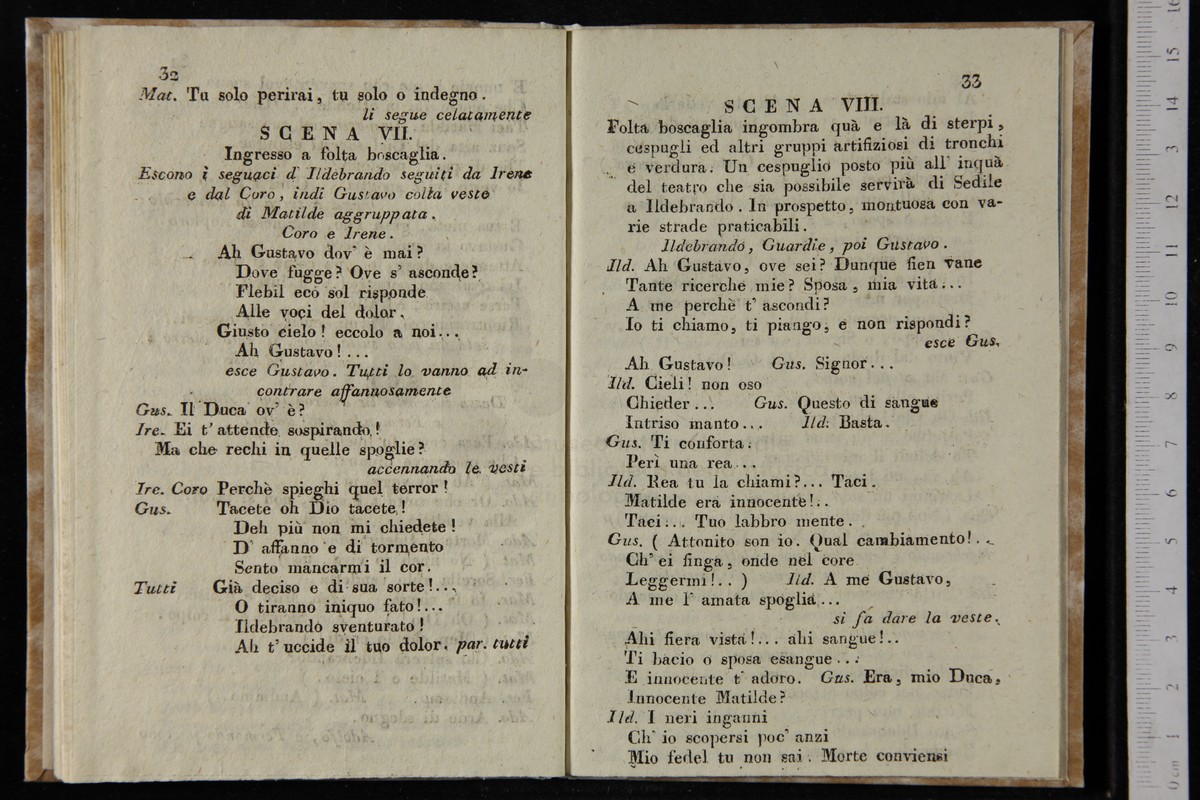 32
Mat. Tu solo perirai, tu solo o indegno.
li segue celatamente
SCENA VII.
Ingresso a folta boscaglia.
Escono i seguaci d' Ildebrando seguiti da Irene
e dal Coro, indi Gustavo colla veste
di Matilde aggruppata.
Coro e Irene.
Ah Gustavo dov' è mai?
Dove fugge? Ove s' asconde?
Flebil eco sol risponde
Alle voci del dolor.
Giusto cielo! eccolo a noi...
Ah Gustavo!...
esce Gustavo. Tutti lo vanno ad in-
contrare affannosamente
Gus. Il Duca ov' è?
Ire. Ei t' attende sospirando!
Ma che rechi in quelle spoglie?
accennando le vesti
Ire. Coro Perchè spieghi quel terror!
Gus. Tacete oh Dio tacete!
Deh più non mi chiedete!
D' affanno e di tormento
Sento mancarmi il cor.
Tutti Già deciso e di sua sorte!...
O tiranno iniquo fato!...
Ildebrando sventurato!
Ah t' uccide il tuo dolor. par. tutti
33
SCENA VIII.
Folta boscaglia ingombra quà e là di sterpi,
cespugli ed altri gruppi artifiziosi di tronchi
e verdura. Un cespuglio posto più all' inquà
del teatro che sia possibile servirà di Sedile
a Ildebrando. In prospetto, montuosa con va-
rie strade praticabili.
Ildebrando, Guardie, poi Gustavo.
Ild. Ah Gustavo, ove sei? Dunque fien vane
Tante ricerche mie? Sposa, mia vita...
A me perchè t' ascondi?
Io ti chiamo, ti piango, e non rispondi?
esce Gus.
Ah Gustavo! Gus. Signor...
Ild. Cieli! non oso
Chieder... Gus. Questo di sangue
Intriso manto... Ild. Basta.
Gus. Ti conforta.
Perì una rea...
Ild. Rea tu la chiami?... Taci.
Matilde era innocente!..
Taci... Tuo labbro mente.
Gus. ( Attonito son io. Qual cambiamento!..
Ch' ei finga, onde nel core
Leggermi!.. ) Ild. A me Gustavo,
A me l' amata spoglia...
si fa dare la veste.
Ahi fiera vista!... ahi sangue!..
Ti bacio o sposa esangue...
E innocente t' adoro. Gus. Era, mio Duca,
Innocente Matilde?
Ild. I neri inganni
Ch' io scopersi poc' anzi
Mio fedel tu non sai. Morte conviensi